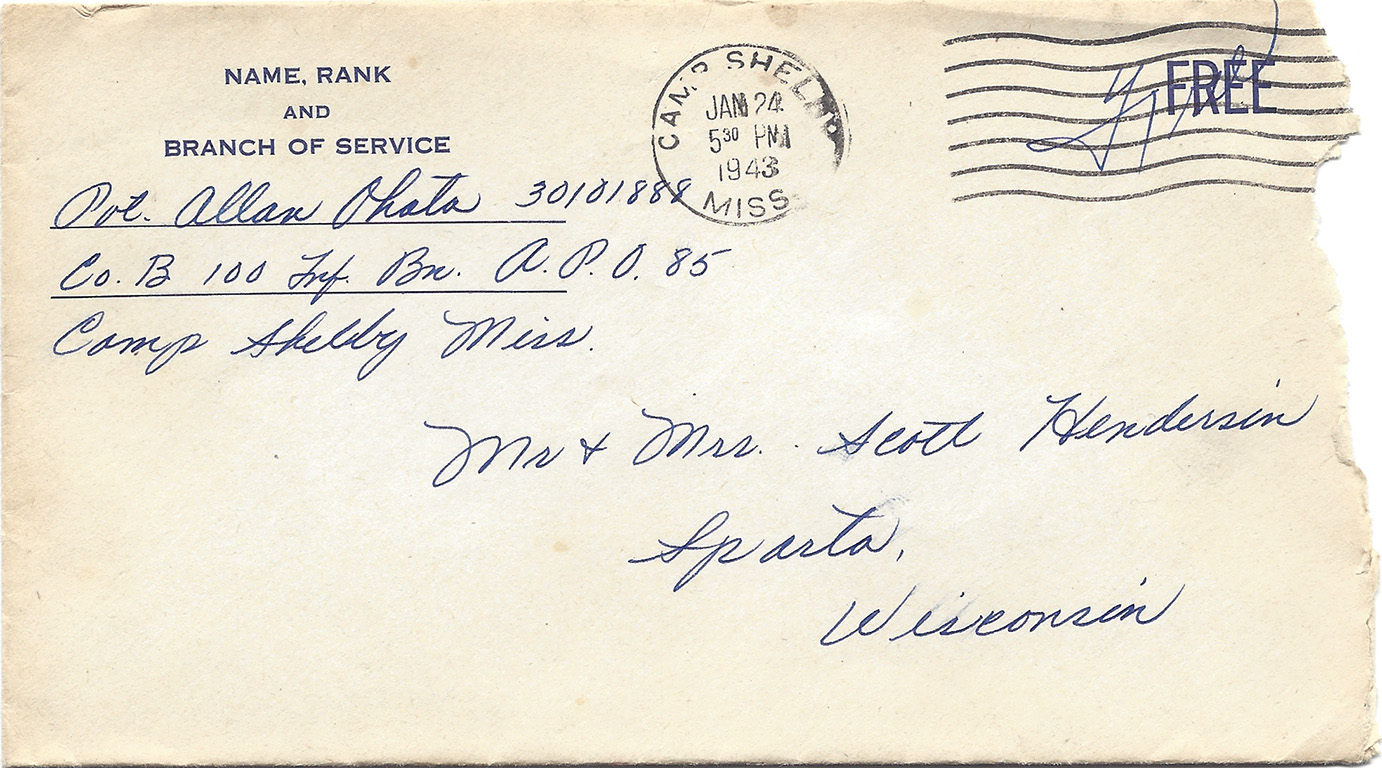 NAME, RANK
AND
BRANCH OF SERVICE
Pvt. Allan Ohata 30101888
Co. B 100 Inf. Bn. A.P.O. 85
Camp Shelby Miss.
CAMP SHELBY
JAN 24
5 30 PM
1943
MISS
FREE
Free
Mr & Mrs. Scott Hendersin
Sparta,
Wisconsin